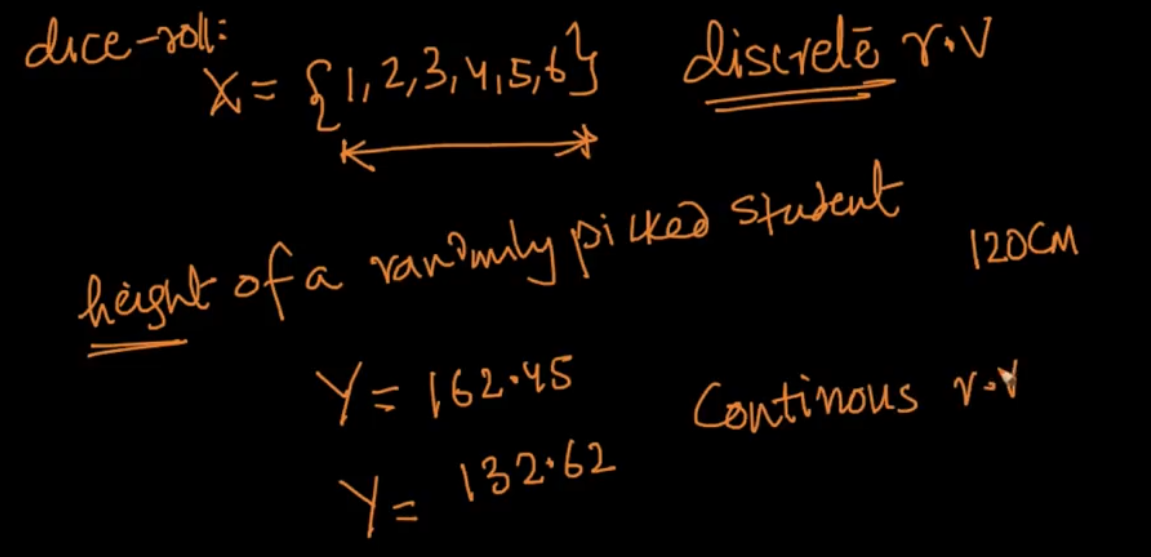 dice-roll:
X = {1,2,3,4,5,6} discrete r.v
height of a randomly picked student
120CM
Y = 162.45
Continous r.v
Y = 132.62